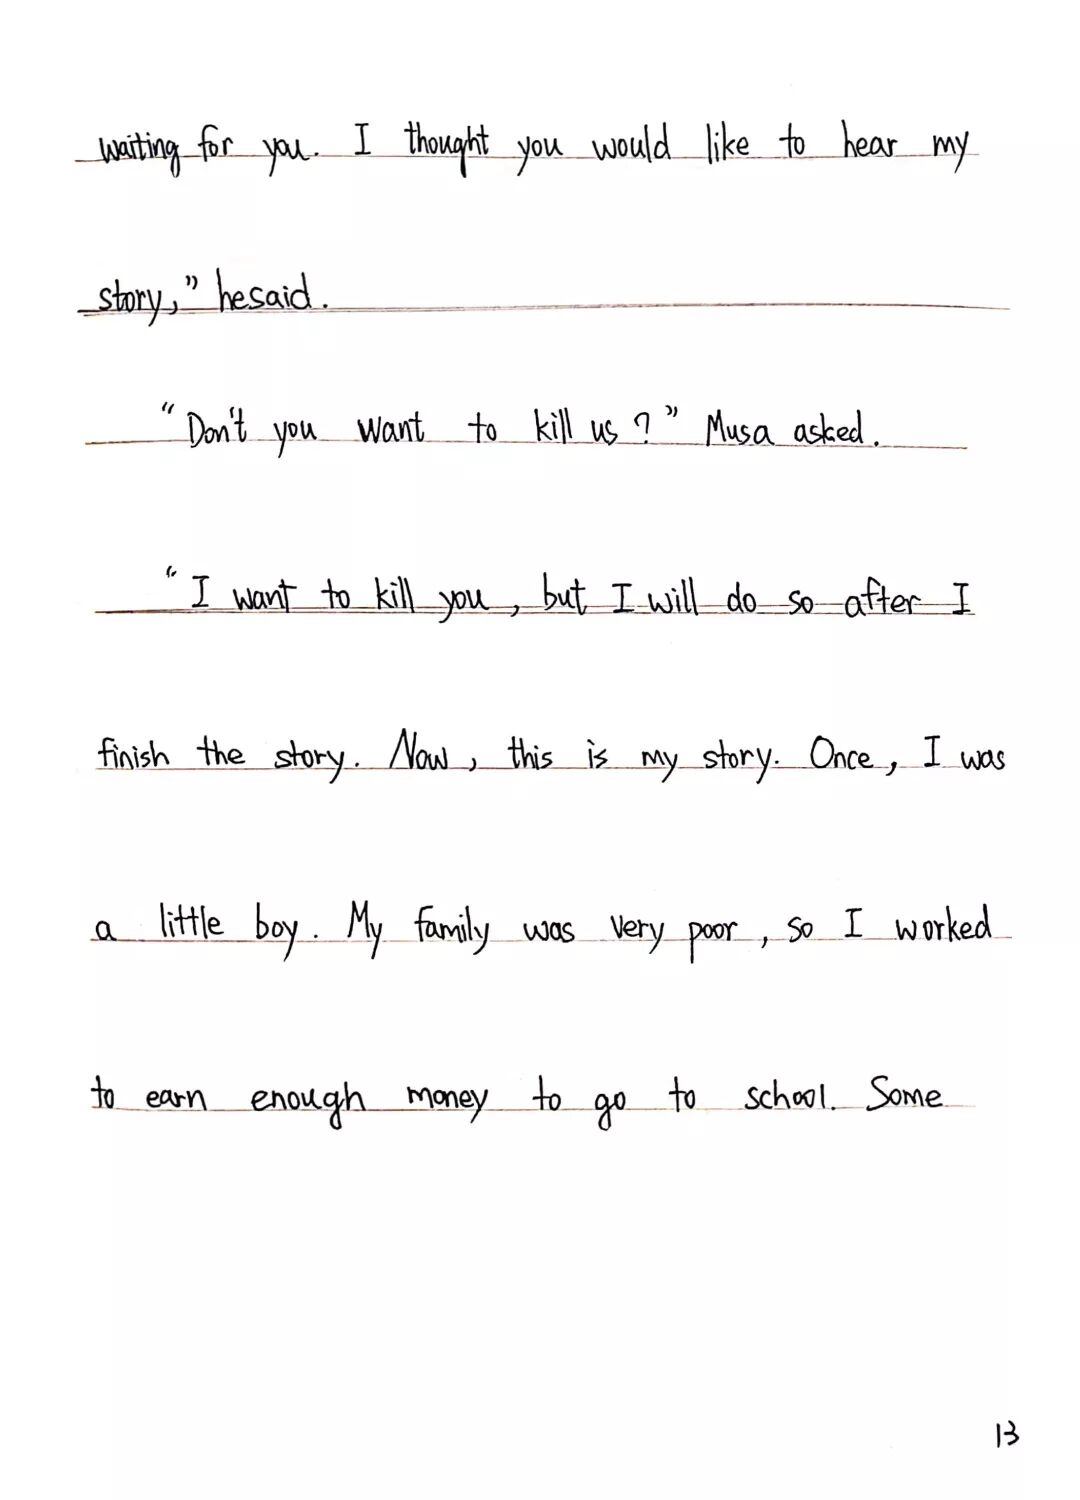 waiting for you. I thought you would like to hear my
story," hesaid.
"Don't you want to kill us?" Musa asked.
"I want to kill you, but I will do so after I
finish the story. Now, this is my story. Once, I was
a little boy. My family was very poor, so I worked
to earn enough money to go to school. Some
13